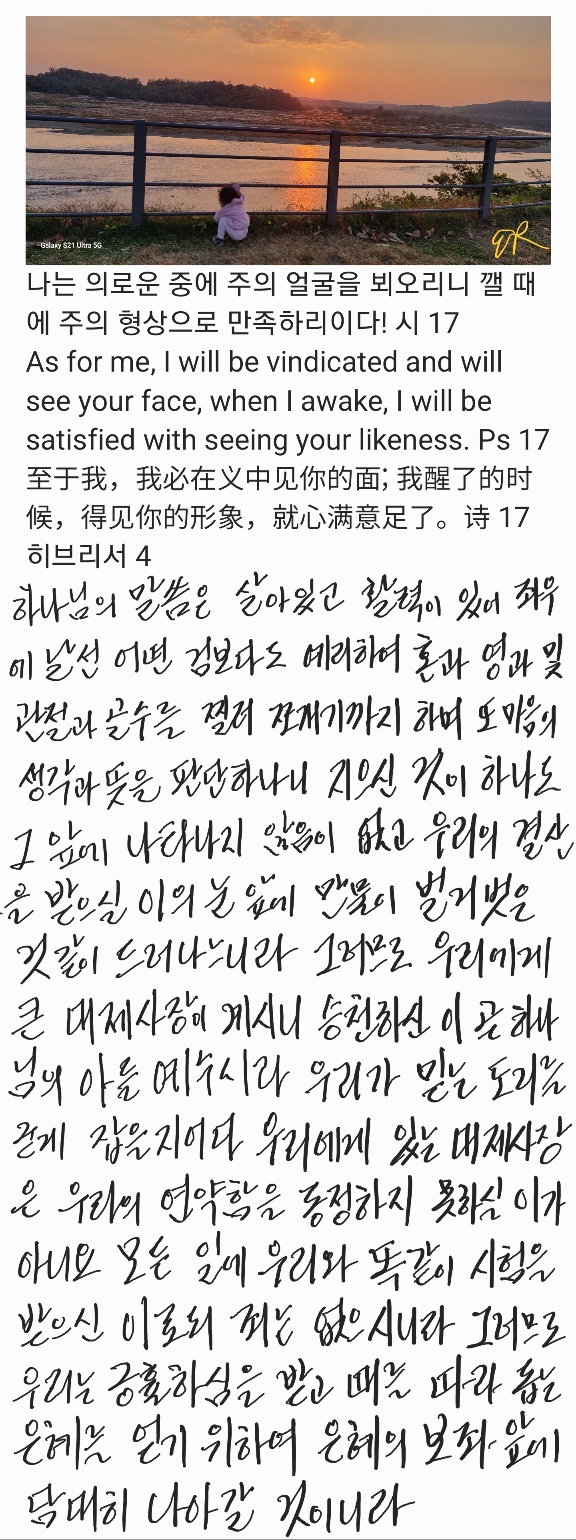 Galaxy S21 Ultra 5G
ER
나는 의로운 중에 주의 얼굴을 뵈오리니 깰 때
에 주의 형상으로 만족하리이다! 시 17
As for me, I will be vindicated and will
see your face, when I awake, I will be
satisfied with seeing your likeness. Ps 17
至于我，我必在义中见你的面; 我醒了的时
候，得见你的形象，就心满意足了。诗 17
히브리서 4
하나님의 말씀은 살아있고 활력이 있어 좌우
에 날선 어떤 검보다도 예리하여 혼과 영과 및
관절과 골수를 찔러 쪼개기까지 하며 또 마음의
생각과 뜻을 판단하나니 지으신 것이 하나도
그 앞에 나타나지 않음이 없고 우리의 결산
을 받으실 이의 눈 앞에 만물이 벌거벗은
것 같이 드러나느니라 그러므로 우리에게
큰 대제사장이 계시니 승천하신 이 곧 하나
님의 아들 예수시라 우리가 믿는 도리를
굳게 잡을지어다 우리에게 있는 대제사장
은 우리의 연약함을 동정하지 못하실 이가
아니요 모든 일에 우리와 똑같이 시험을
받으신 이로되 죄는 없으시니라 그러므로
우리는 긍휼하심을 받고 때를 따라 돕는
은혜를 얻기 위하여 은혜의 보좌 앞에
담대히 나아갈 것이니라